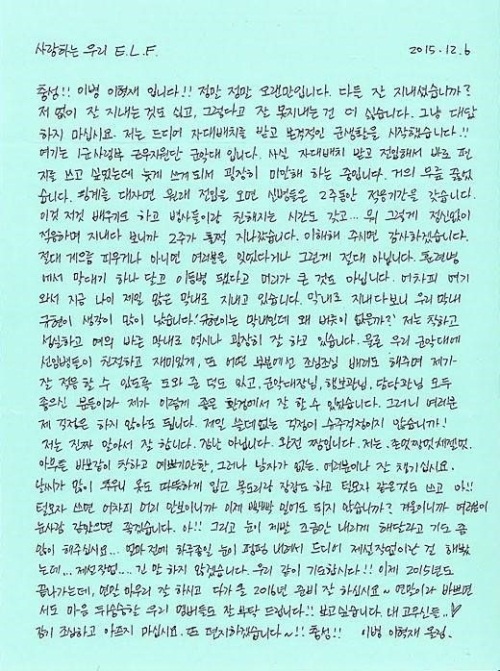 사랑하는 우리 E.L.F. 2015.12.6
충성!! 이병 이혁재 입니다!! 정말 정말 오랜만입니다. 다들 잘 지내셨습니까?
저 없이 잘 지내는 것도 싫고, 그렇다고 잘 못지내는 건 더 싫습니다. 그냥 대답
하지 마십시요. 저는 드디어 자대배치를 받고 본격적인 군생활을 시작했습니다!!
여기는 1군사령부 근무지원단 군악대 입니다. 사실 자대배치 받고 전입해서 바로 편
지를 쓰고 싶었는데 늦게 쓰게되서 굉장히 미안해 하는 중입니다. 거의 무릎 꿇었
습니다. 핑계를 대자면 원래 전입을 오면 신병들은 2주동안 적응기간을 갖습니다.
이것 저것 배우기도 하고 병사들이랑 친해지는 시간도 갖고... 뭐 그렇게 정신없이
적응하며 지내다 보니까 2주가 훌쩍 지나갔습니다. 이해해 주시면 감사하겠습니다.
절대 게으름 피우거나 아니면 여러분을 잊었다거나 그런게 절대 아닙니다. 훈련병
에서 막대기 하나 달고 이등병 됐다고 머리가 큰 것도 아닙니다. 어차피 여기
와서 지금 나이 제일 많은 막내로 지내고 있습니다. 막내로 지내다보니 우리 막내
규현이 생각이 많이 났습니다. '규현이는 막내인데 왜 버릇이 없을까?' 저는 착하고
성실하고 예의 바른 막내로 역시나 굉장히 잘 하고 있습니다. 물론 우리 군악대에
선임병들이 친절하고 재미있게, 또 어떤 부분에선 조심조심 배려도 해주며 제가
잘 적응할 수 있도록 도와 준 덕도 있고, 군악대장님, 행보관님, 담당관님 모두
좋으신 분들이라 제가 이렇게 좋은 환경에서 잘 할 수 있었습니다. 그러니 여러분
제 걱정은 하지 않아도 됩니다. 제일 쓸데없는 걱정이 이걱정이지 말입니다!
저는 진짜 알아서 잘 합니다. 장난 아닙니다. 완전 짱입니다. 저는.
아무튼 바보같이 착하고 예쁘기만한, 그러나 남자가 없는. 여러분이나 잘 챙기십시요.
날씨가 많이 추우니 옷도 따뜻하게 입고 목도리랑 장갑도 하고 털모자 같은것도 쓰고 아!!
털모자 쓰면 어차피 머리 안보이니까 이제 빡빡 밀어도 되지 않습니까? 겨울이니까 여러분이
눈사람 같았으면 좋겠습니다. 아!! 그리고 눈이 제발 조금만 내리게 해달라고 기도 좀
많이 해주십시요... 얼마 전에 하루종일 눈이 펑펑 내려서 드디어 제설작업이란 걸 해봤
는데... 제설작업... 긴 말 하지 않겠습니다. 우리 같이 기도합시다!! 이제 2015년도
끝나가는데, 연말 마무리 잘 하시고 다가올 2016년 준비 잘 하십시요~ 연말이라 바쁘면
서도 마음 뒤숭숭한 우리 멤버들도 잘 부탁 드립니다!! 보고싶습니다. 내 고무신들..♥
감기 조심하고 아프지 마십시요. 또 편지하겠습니다~!! 충성!! 이병 이혁재 올림.